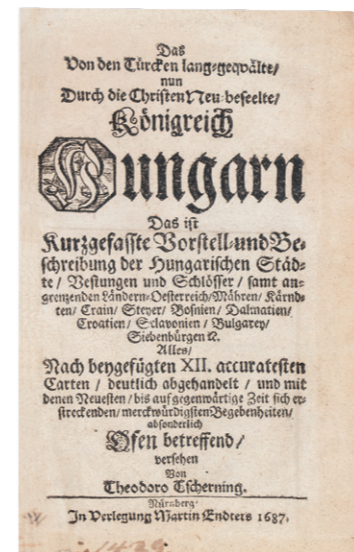 Das
Von den Türcken lang-geqvälte/
nun
Durch die Christen Neu-beseelte/
Königreich
Hungarn
Das ist
Kurzgefasste Vorstell-und Be-
schreibung der Hungarischen Städ-
te/ Vestungen und Schlösser/ samt an-
grenzenden Ländern-Oesterreich/Mähren/ Kärnd-
ten/ Crain/ Steyer/ Bosnien/ Dalmatien/
Croatien/ Sclavonien/ Bulgarey/
Siebenbürgen ꝛc.
Alles/
Nach beygefügten XII. accuratesten
Carten / deutlich abgehandelt / und mit
denen Neuesten/ bis auf gegenwärtige Zeit sich er-
streckenden/ merckwürdigsten Begebenheiten/
absonderlich
Ofen betreffend/
versehen
Von
Theodoro Tscherning.
Nürnberg/
In Verlegung Martin Endters 1687.